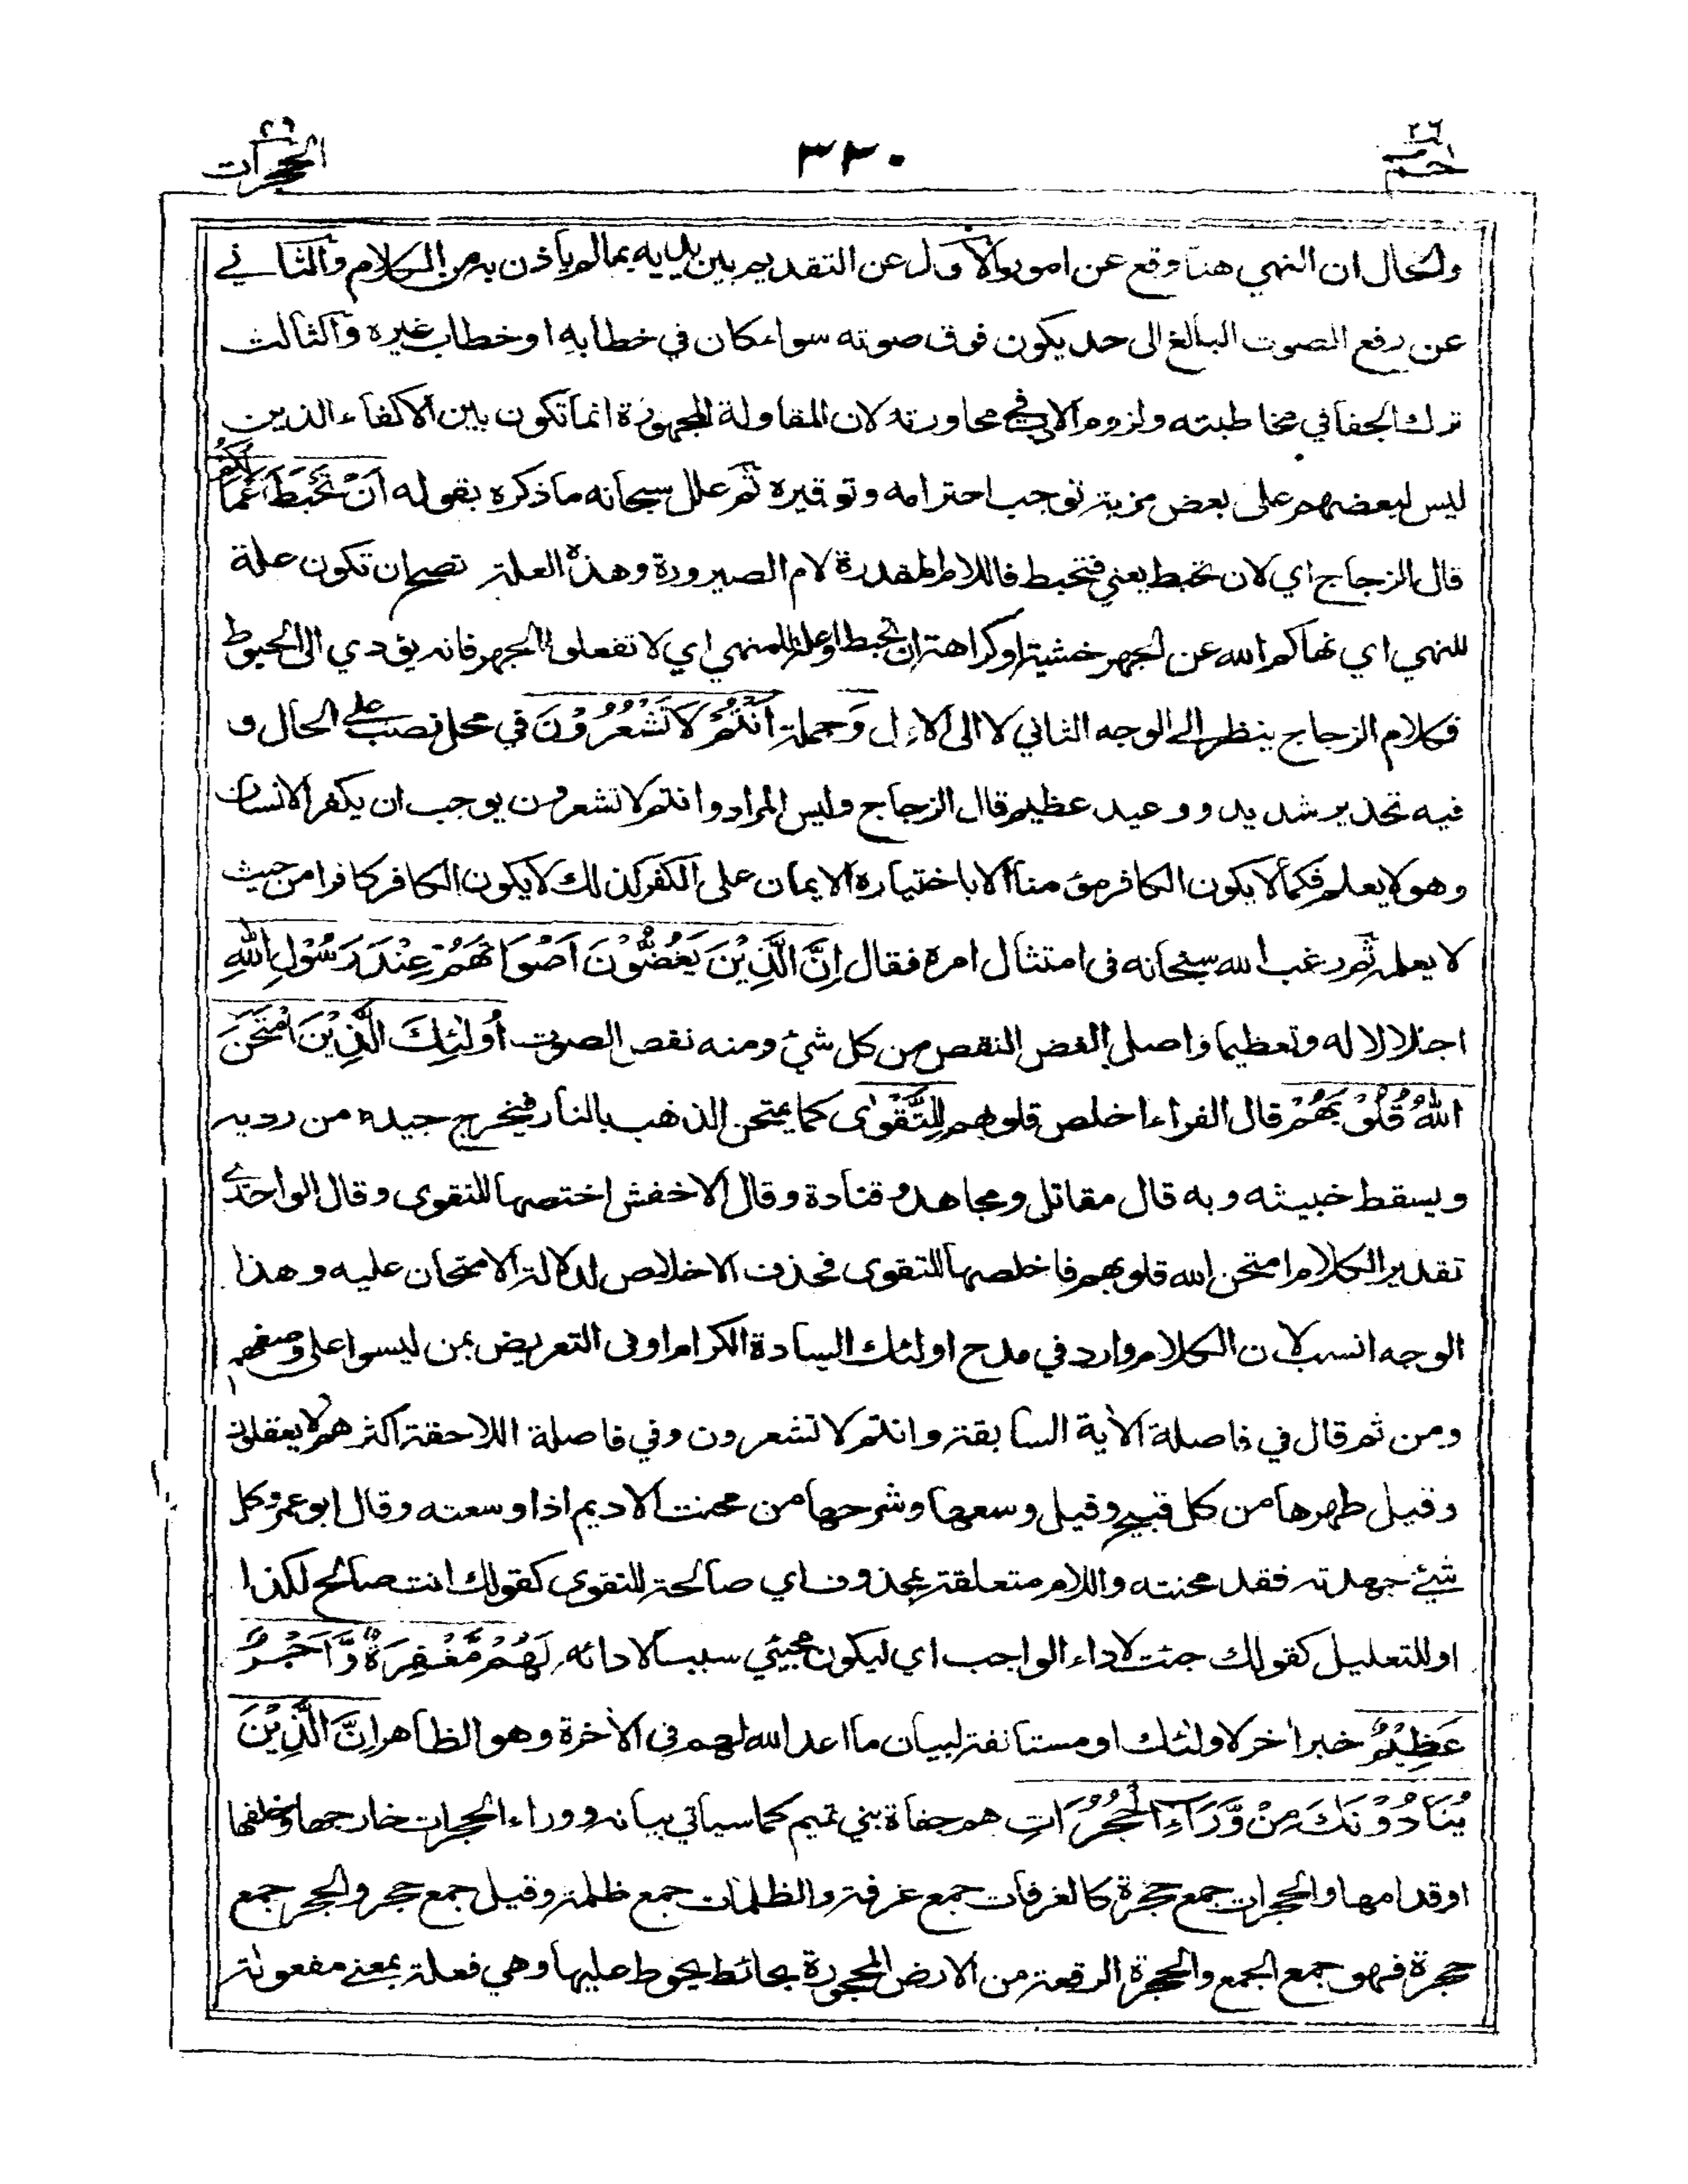 ٢٦ حم
٣٢٠
٤٩ الحجرات
والحال ان النهي هنا وقع عن امور الاول عن التقديم بين يديه بما لم ياذن به من الكلام والثاني
عن رفع الصوت البالغ الى حد يكون فوق صوته سواء كان في خطابه او خطاب غيره والثالث
ترك الجفا في مخاطبته ولزوم الادب في محاورته لان المقاولة المجهورة انما تكون بين الاكفاء الذين
ليس لبعضهم على بعض مزية توجب احترامه وتوقيره ثم علل سبحانه ما ذكره بقوله اَنْ تَحْبَطَ اَعْمَالُكُمْ
قال الزجاج اي لان تحبط يعني فتحبط فاللام المقدرة لام الصيرورة وهذه العلة تصح ان تكون علة
للنهي اي نهاكم الله عن الجهر خشية او كراهة ان تحبط او علة للمنهي اي لا تفعلوا الجهر فانه يؤدي الى الحبوط
فكلام الزجاج ينظر الى الوجه الثاني لا الى الاول وَجملة اَنْتُمْ لَا تَشْعُرُوْنَ في محل نصب على الحال و
فيه تحذير شديد ووعيد عظيم قال الزجاج وليس المراد وانتم لا تشعرون يوجب ان يكفر الانسان
وهو لا يعلم فكما لا يكون الكافر مؤمنا الا باختياره الايمان على الكفر كذلك لا يكون الكافر كافرا من حيث
لا يعلم ثم رغب الله سبحانه في امتثال امره فقال اِنَّ الَّذِيْنَ يَغُضُّوْنَ اَصْوَاتَهُمْ عِنْدَ رَسُوْلِ اللّٰهِ
اجلالا له وتعظيما واصل الغض النقص من كل شيء ومنه نقص الصوت اُولٰئِكَ الَّذِيْنَ امْتَحَنَ
اللّٰهُ قُلُوْبَهُمْ قال الفراء اخلص قلوبهم لِلتَّقْوٰى كما يمتحن الذهب بالنار فيخرج جيده من رديه
ويسقط خبيثه وبه قال مقاتل ومجاهد وقتادة وقال الاخفش اختصها للتقوى وقال الواحدي
تقدير الكلام امتحن الله قلوبهم فاخلصها للتقوى فحذف الاخلاص لدلالة الامتحان عليه وهذا
الوجه انسب لان الكلام وارد في مدح اولئك السادة الكرام او في التعريض بمن ليسوا على وصفهم
ومن ثم قال في فاصلة الاٰية السابقة وانتم لا تشعرون وفي فاصلة اللاحقة اكثرهم لا يعقلون
وقيل طهرها من كل قبيح وقيل وسعها وشرحها من محنت الاديم اذا وسعته وقال ابو عمرو كل
شيئ جهدته فقد محنته واللام متعلقة بمحذوف اي صالحة للتقوى كقولك انت صالح لكذا
او للتعليل كقولك جئت لاداء الواجب اي ليكون مجيئي سببا لادائه لَهُمْ مَّغْفِرَةٌ وَّاَجْرٌ
عَظِيْمٌ خبر اٰخر لاولئك او مستانفة لبيان ما اعد الله لهم في الاٰخرة وهو الظاهر اِنَّ الَّذِيْنَ
يُنَادُوْنَكَ مِنْ وَّرَآءِ الْحُجُرَاتِ هم جفاة بني تميم كما سياتي بيانه ووراء الحجرات خارجها وخلفها
او قدامها والحجرات جمع حجرة كالغرفات جمع غرفة والظلمات جمع ظلمة وقيل جمع حجر والحجر جمع
حجرة فهو جمع الجمع والحجرة الرقعة من الارض المحجورة بحائط يحوط عليها وهي فعلة بمعنى مفعولة